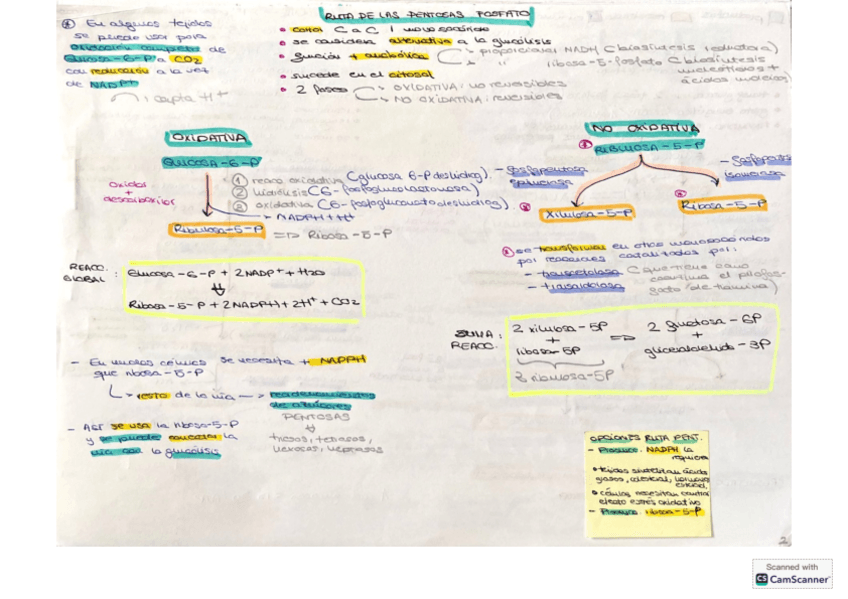 RUTA DE LAS PENTOSAS FOSFATO
* En algunos tejidos
se puede usar para
oxidación completa de
Glucosa-6-P a CO2
con reducción a la vez
de NADP+
capta H+
se considera alternativa a la glucólisis
función + anabólica
proporcionar NADH (biosíntesis reductora)
" ribosa-5-fosfato (biosíntesis
nucleótidos +
ácidos nucleicos)
sucede en el citosol
2 fases
OXIDATIVA: no reversibles
NO OXIDATIVA: reversibles
OXIDATIVA
Glucosa-6-P
oxidar
+
descarboxilar
① reacc oxidativa (glucosa 6-P deshidrog).
② hidrólisis (6-fosfogluconolactonasa)
③ oxidativa (6-fosfogluconato deshidrog).
NADPH + H+
Ribulosa-5-P => Ribosa-5-P
REACC. GLOBAL:
Glucosa-6-P + 2NADP+ + H2O
Ribosa-5-P + 2NADPH + 2H+ + CO2
- En muchas células se necesita + NADPH
que ribosa-5-P
resto de la vía → reordenamientos
de azúcares
PENTOSAS
triosas, tetrosas,
hexosas, heptosas
- Así se usa la ribosa-5-P
y se puede conectar la
vía con la glucólisis
NO OXIDATIVA
RIBULOSA-5-P
- fosfopentosa
epimerasa
- fosfopentosa
isomerasa
Xilulosa-5-P
Ribosa-5-P
se transforman en otros monosacáridos
por reacciones catalizadas por:
- transcetolasa (que tiene como
coenzima el pirofos-
fato de tiamina)
- transaldolasa
SUMA REACC:
2 xilulosa-5P => 2 fructosa-6P
+ +
ribosa-5P gliceraldehído-3P
3 ribulosa-5P
OPCIONES RUTA PENT.
- Produce NADPH la
mayoría
• tejidos sintetizan ácidos
grasos, colesterol, hormonas
esteroid.
• células necesitan control
efecto estrés oxidativo
- Produce ribosa-5-P
2
Scanned with
CS CamScanner